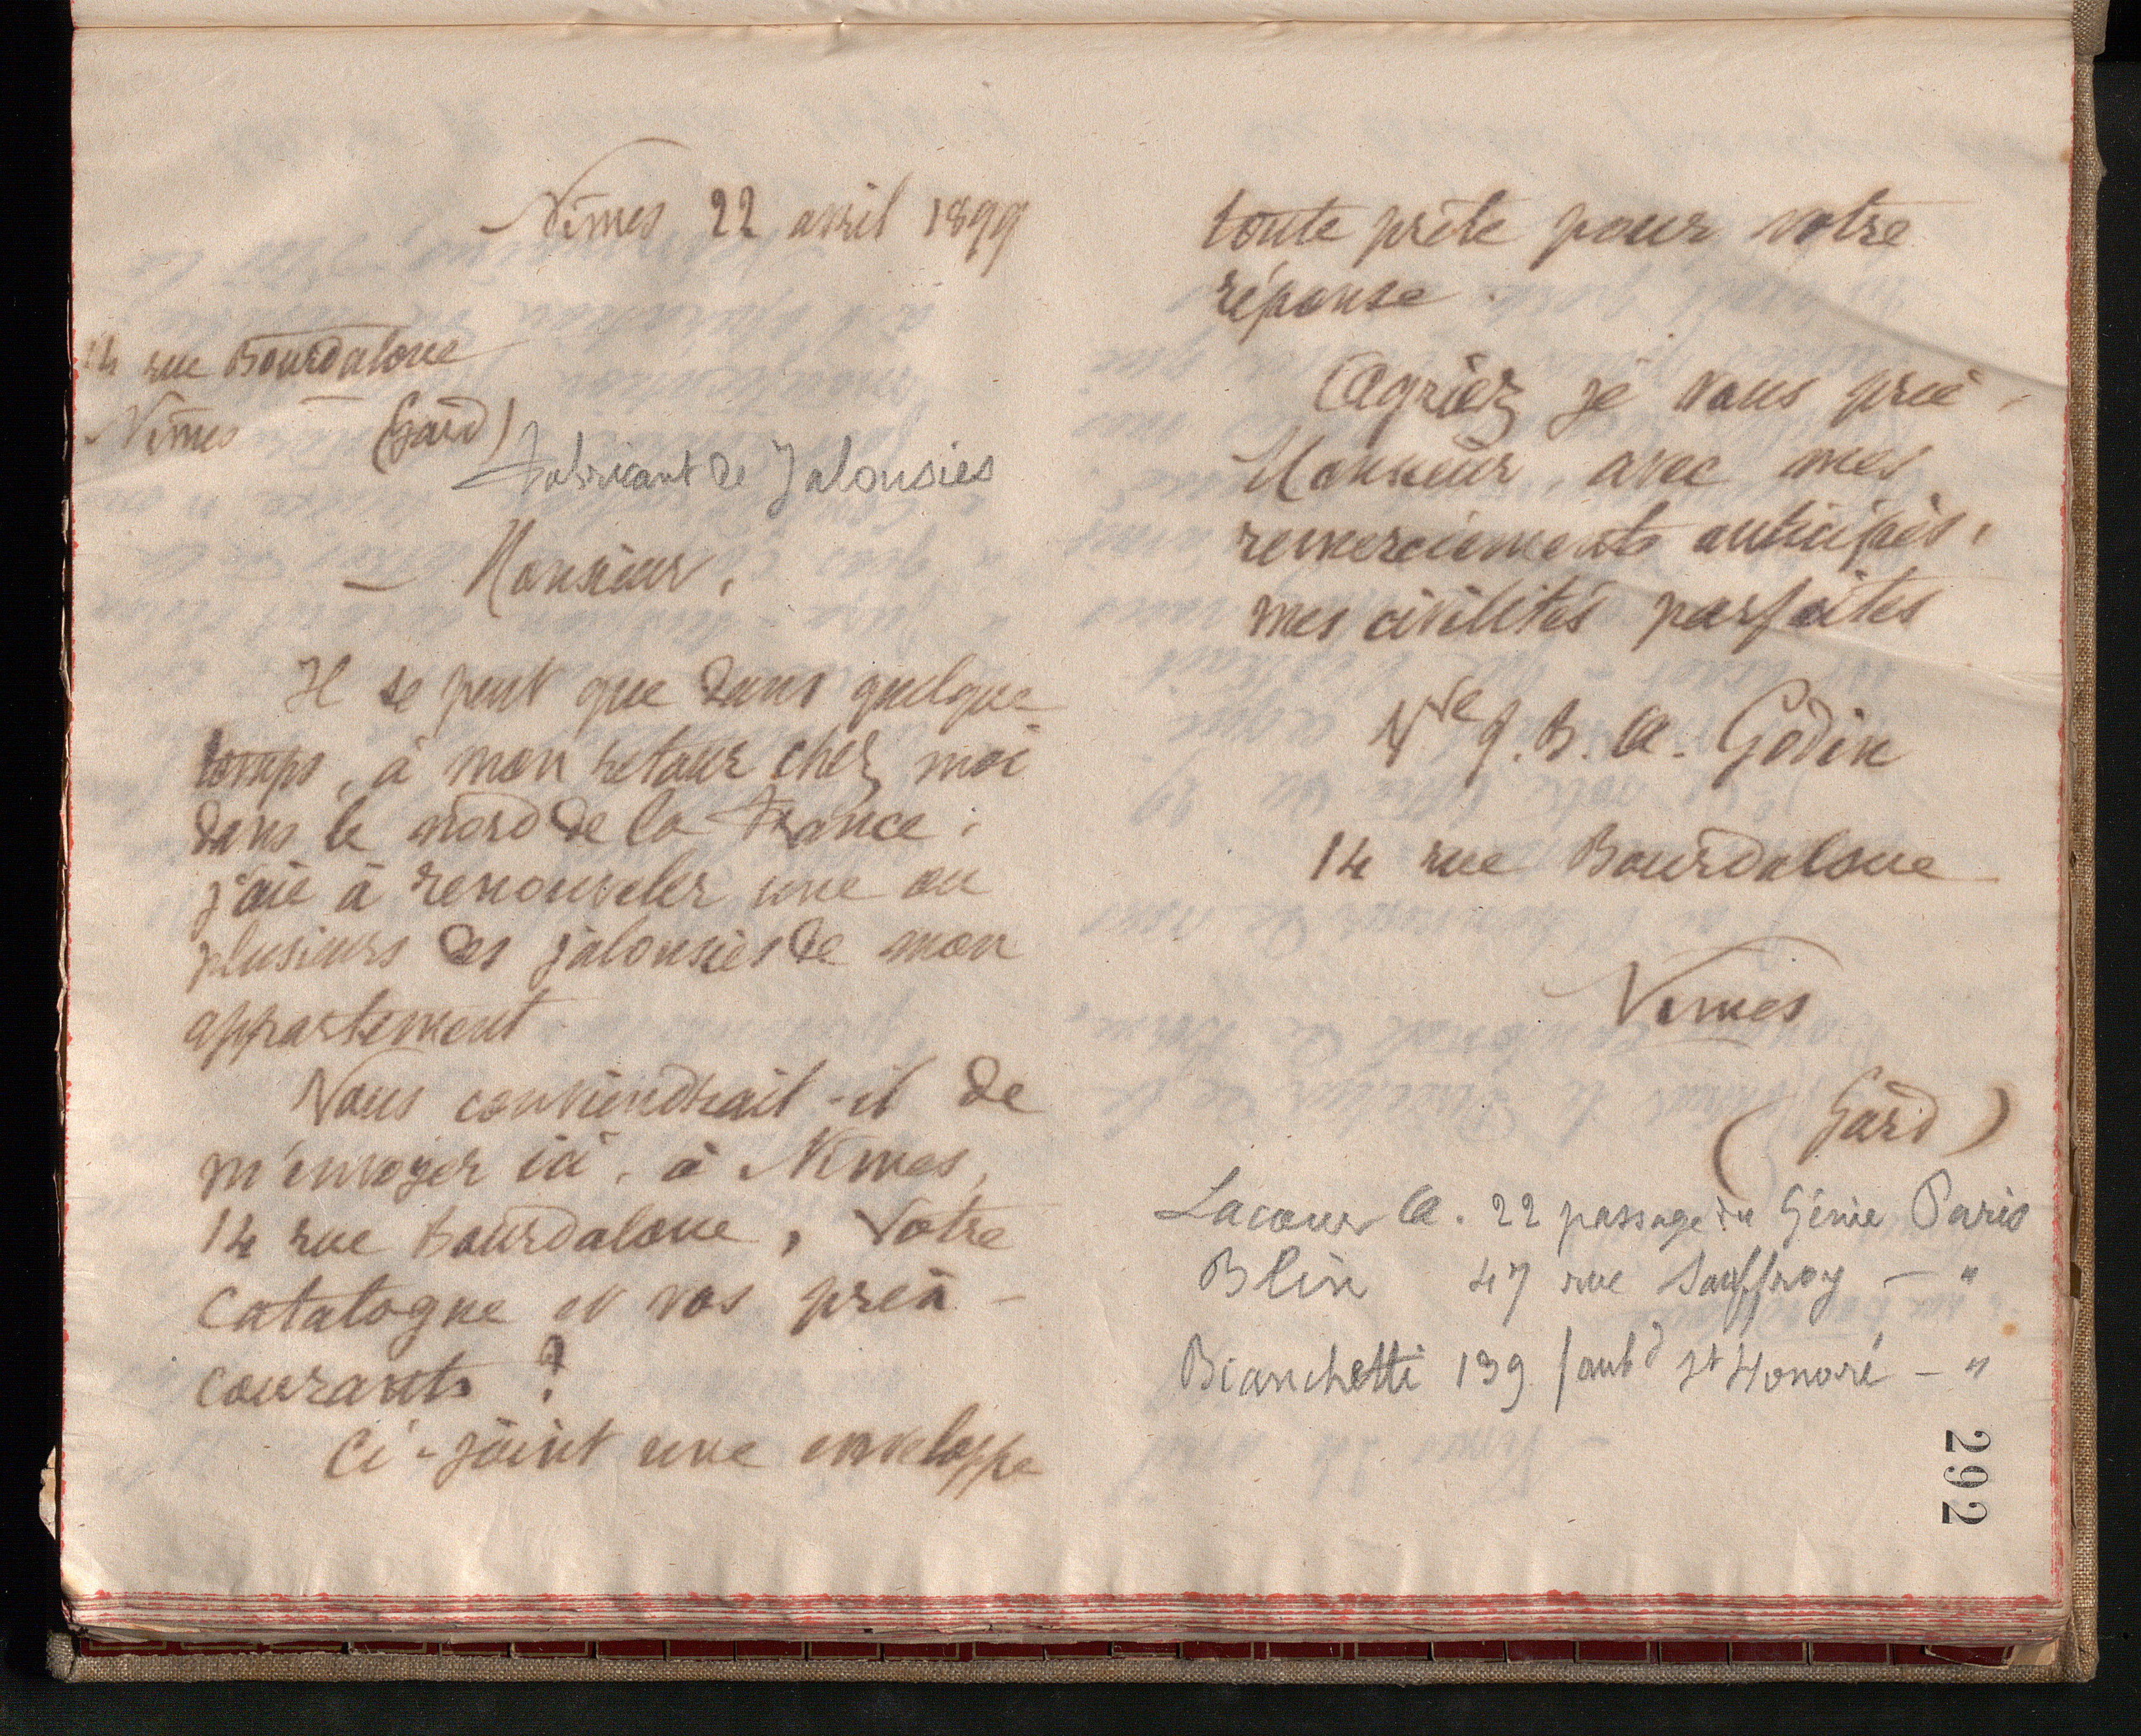 Nîmes 22 avril 1899
14 rue Bourdaloue
Nîmes (Gard)
Fabricant de Jalousies
Monsieur,
Il se peut que dans quelque
temps, à mon retour chez moi
dans le nord de la France,
j'aie à renouveler une ou
plusieurs des jalousies de mon
appartement
Vous conviendrait-il de
m'envoyer ici, à Nîmes,
14 rue Bourdaloue, votre
catalogue et vos prix-
courants ?
Ci-joint une enveloppe
toute prête pour votre
réponse.
Agréez je vous prie,
Monsieur, avec mes
remerciements anticipés,
mes civilités parfaites
Vve J. B. A. Godin
14 rue Bourdaloue
Nîmes
(Gard)
Lacour A. 22 passage du Génie Paris
Blin 47 rue Sauffroy - "
Bianchetti 139 faubd St Honoré - "
292